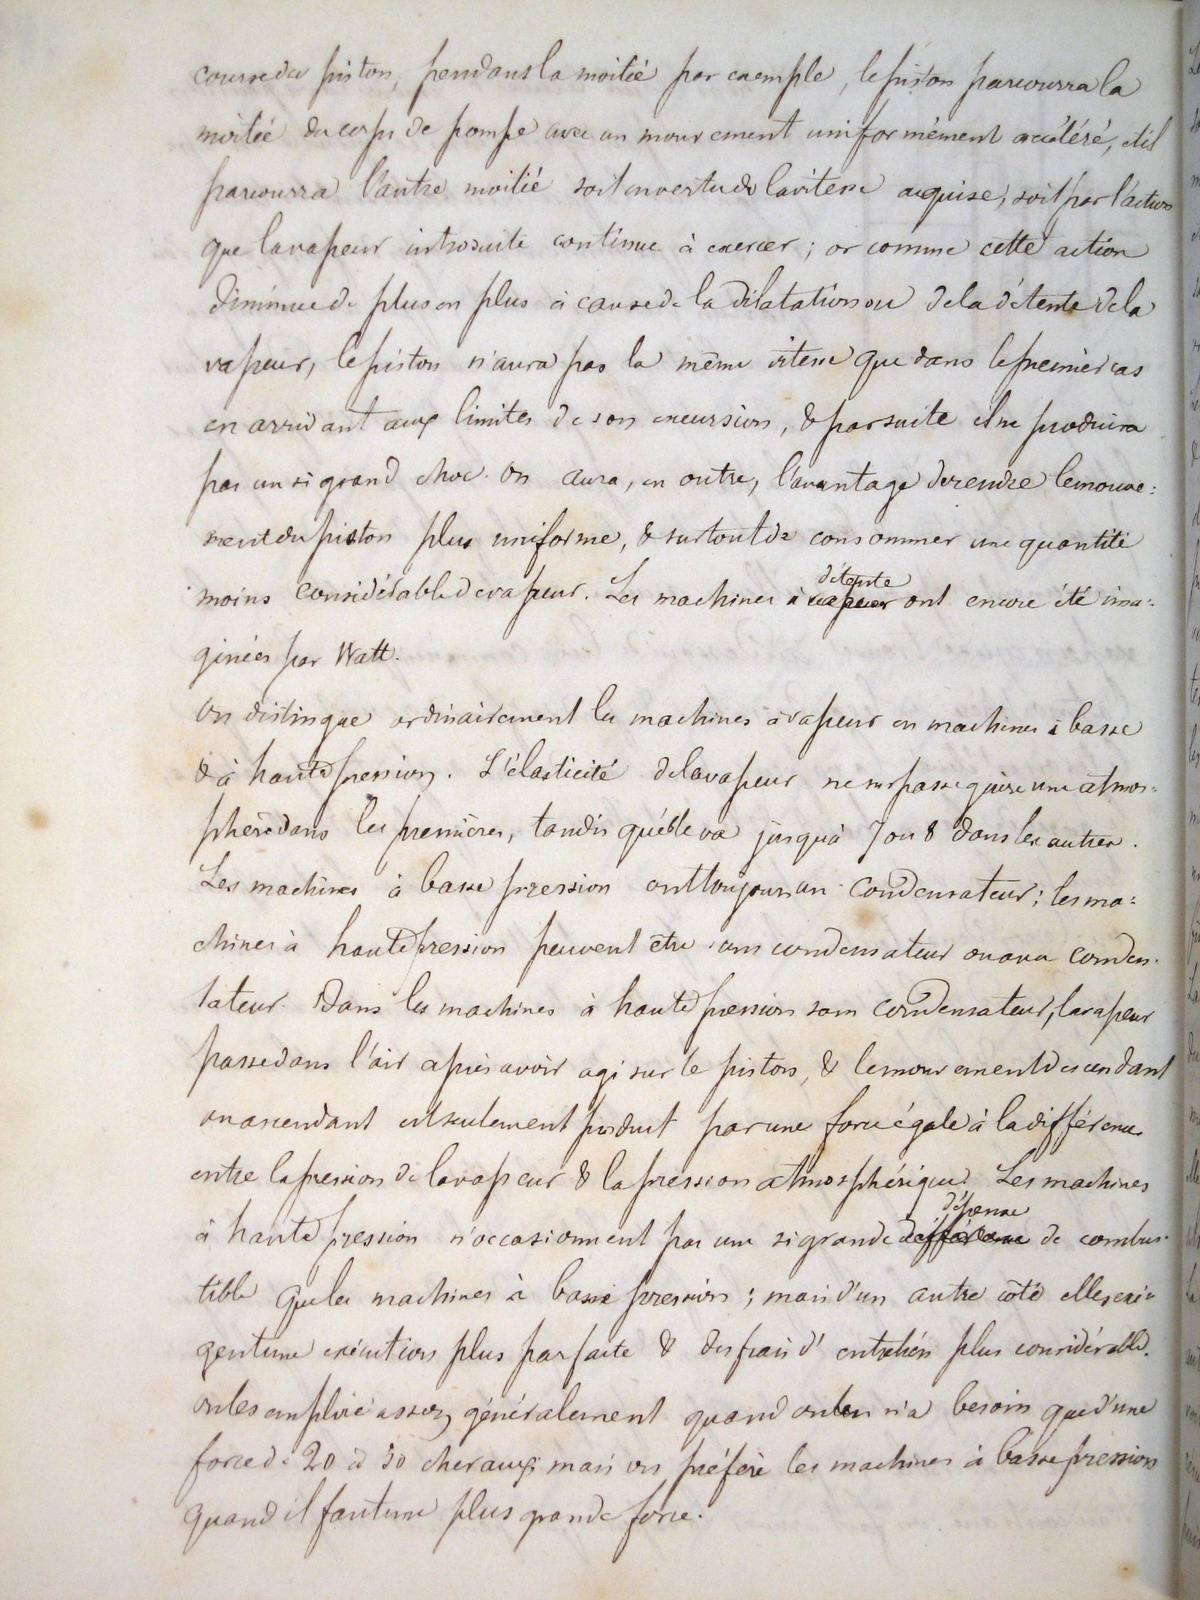 course du piston, pendant la moitié par exemple, le piston parcourra la
moitié du corps de pompe avec un mouvement uniformément accéléré, et il
parcourra l'autre moitié soit en vertu de la vitesse acquise, soit par l'action
que la vapeur introduite continue à exercer ; or comme cette action
diminue de plus en plus à cause de la dilatation ou de la détente de la
vapeur, le piston n'aura pas la même vitesse que dans le premier cas
en arrivant aux limites de son excursion, & par suite il ne produira
pas un si grand choc. On aura, en outre, l'avantage de rendre le mouve:
ment du piston plus uniforme, & surtout de consommer une quantité
moins considérable de vapeur. Les machines à vapeur détente ont encore été ima:
ginées par Watt.
On distingue ordinairement les machines à vapeur en machines à basse
& à haute pression. L'élasticité de la vapeur ne surpasse guère une atmos:
phère dans les premières, tandis qu'elle va jusqu'à 7 ou 8 dans les autres.
Les machines à basse pression ont toujours un condensateur ; les ma:
chines à haute pression peuvent être sans condensateur ou avec conden:
sateur. Dans les machines à haute pression sans condensateur, la vapeur
passe dans l'air après avoir agi sur le piston, & le mouvement descendant
ou ascendant est seulement produit par une force égale à la différence
entre la pression de la vapeur & la pression atmosphérique. Les machines
à haute pression n'occasionnent pas une si grande différence dépense de combus:
tible que les machines à basse pression ; mais d'un autre côté elles exi:
gent une exécution plus parfaite & des frais d'entretien plus considérable.
on les emploie assez généralement quand on n'a besoin que d'une
force de 20 à 30 chevaux ; mais on préfère les machines à basse pression
quand il faut une plus grande force.